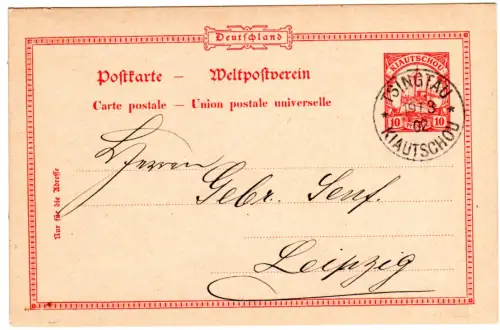 Deutschland
Postkarte — Weltpostverein
Carte postale — Union postale universelle
KIAUTSCHOU
10 10
TSINGTAU
* *
02
KIAUTSCHOU
Herren
Gebr. Senf.
Leipzig
Nur für die Adresse